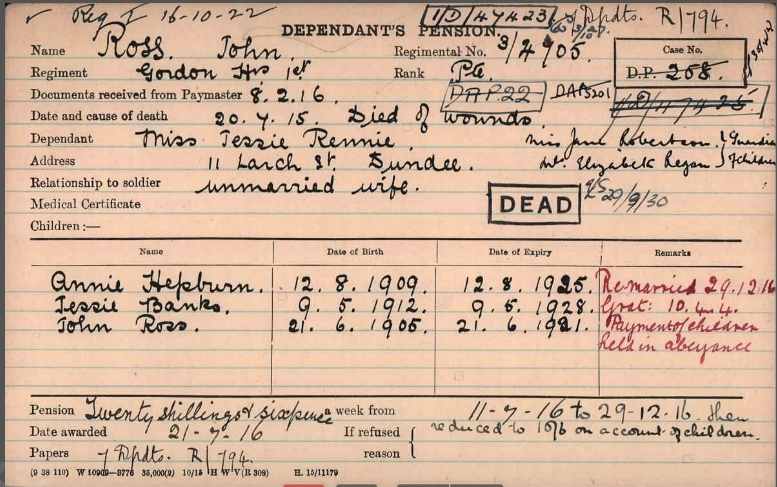 ✓ Reg I 16-10-22 1/D/47423 7 Dpdts. R/794.
DEPENDANT'S PENSION.
Name Ross. John. Regimental No. 3/4905. Case No.
Regiment Gordon Hrs 1st Rank Pte. D.P. 258.
Documents received from Paymaster 8.2.16. DAP22 DAP5201
Date and cause of death 20.7.15. Died of wounds
Dependant Miss Jessie Rennie. Miss Jane Robertson. } Guardian
Address 11 Larch St. Dundee. Mrs. Elizabeth Regan } of children
Relationship to soldier unmarried wife.
Medical Certificate DEAD 29/9/30
Children:—
Name Date of Birth Date of Expiry Remarks
Annie Hepburn. 12.8.1909. 12.8.1925. Re-married 29.12.16
Jessie Banks. 9.5.1912. 9.5.1928. Grat: 10.4.4.
John Ross. 21.6.1905. 21.6.1921. Payment of children
held in abeyance
Pension Twenty shillings & sixpence a week from 11-7-16 to 29-12-16. then
Date awarded 21-7-16 If refused { reduced to 10/6 on account of children.
Papers 7 Dpdts. R/794. reason
(9 38 110) W 10909—8776 35,000(2) 10/15 H W V(R 308) H. 15/11179